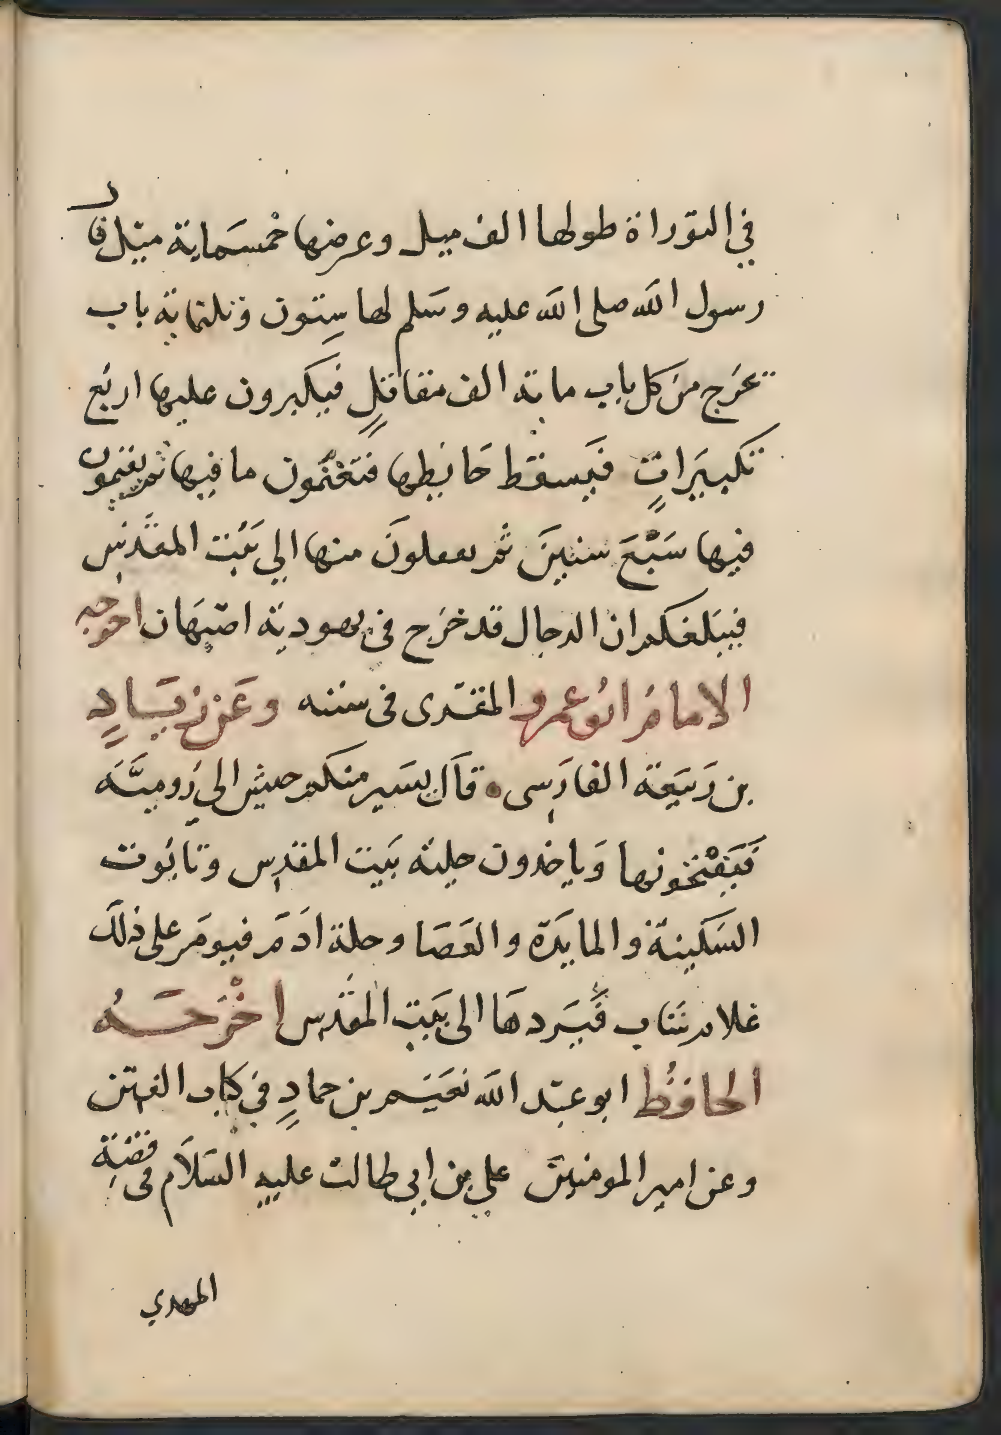 في التوراة طولها الف ميل وعرضها خمسماية ميل قال
رسول الله صلى الله عليه وسلم لها ستون وثلثماية باب
يخرج من كل باب ماية الف مقاتل فيكبرون عليها اربع
تكبيرات فيسقط حايطها فيغنمون ما فيها ثم يقيمون
فيها سبع سنين ثم يقفلون منها الى بيت المقدس
فيبلغكم ان الدجال قد خرج في يهودية اصبهان اخرجه
الامام ابو عمرو المقرى في سننه وعن
بن ربيعة الفارسى قال يسير منكم جيش الى رومية
فيفتحونها وياخذون حلية بيت المقدس وتابوت
السكينة والمايدة والعصا وحلة ادم فيومر على ذلك
غلام شاب فيردها الى بيت المقدس اخرجه
الحافظ ابو عبد الله نعيم بن حماد في كتاب الفتن
وعن امير المومنين علي بن ابي طالب عليه السلام في قصة
المهدي